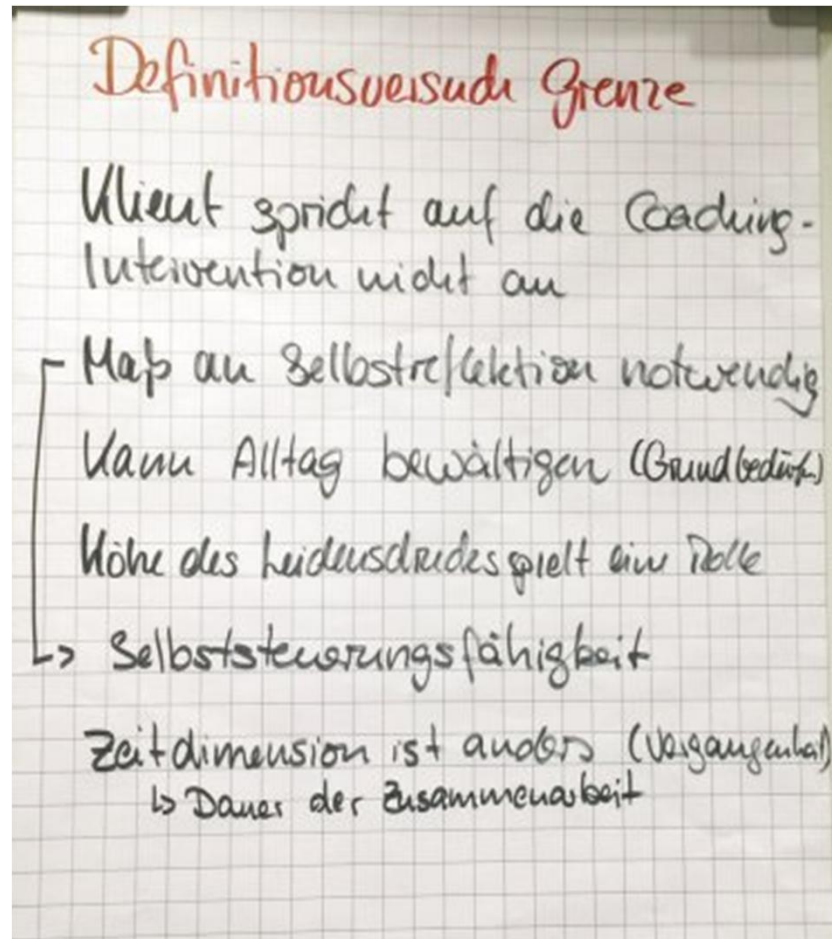 Definitionsversuch Grenze
Klient spricht auf die Coaching-
Intervention nicht an
Maß an Selbstreflektion notwendig
Kann Alltag bewältigen (Grundbedürf.)
Höhe des Leidensdruckes spielt eine Rolle
↳ Selbststeuerungsfähigkeit
Zeitdimension ist anders (Vergangenheit)
↳ Dauer der Zusammenarbeit